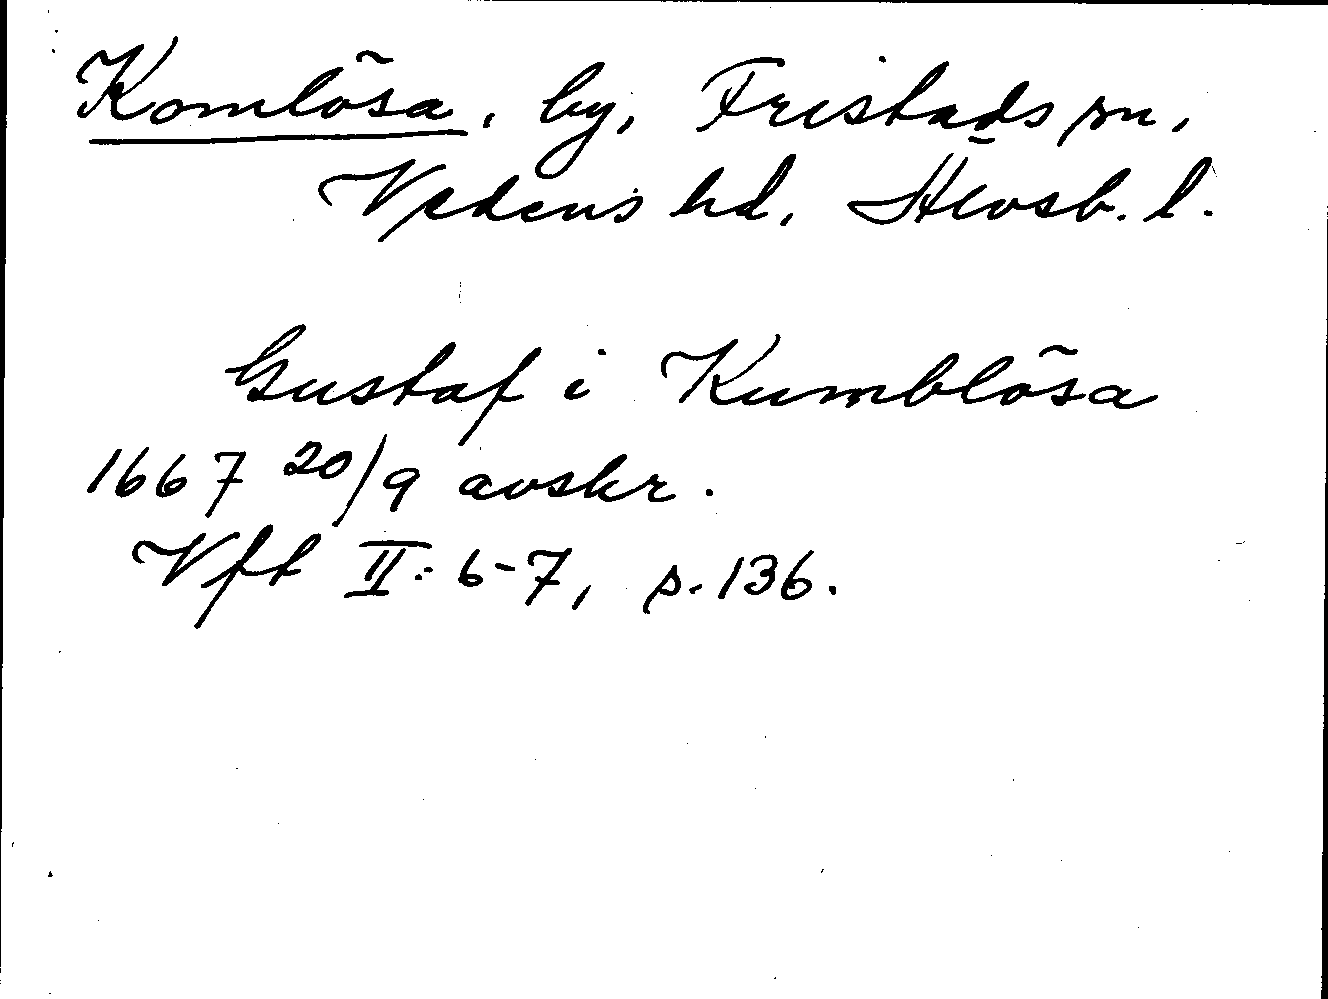 Komlösa, by, Fristads sn,
Vedens hd, Älvsb. l.
Gustaf i Kumblösa
1667 20/9 avskr.
Vft II: 6-7, s. 136.